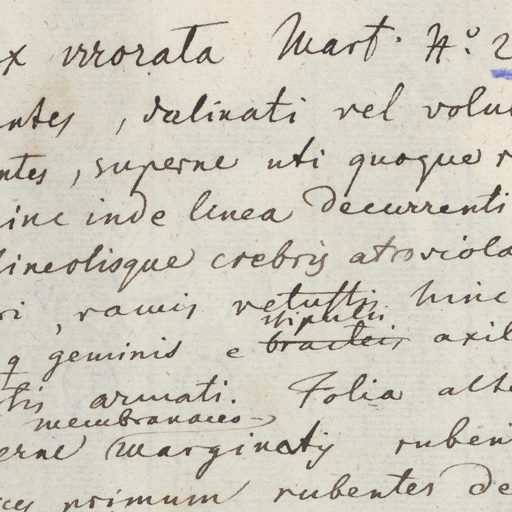 x irrorata Mart. N.º 2
entes, salinati vel volu
ntes, superne uti quoque r
inc inde linea decurrenti
lineolisque crebris atroviola
ri, ramis vetustis hinc
stipulis
q geminis e bracteis axil
tis armati. Folia alte
membranaceo
erne marginatis ruben
ces primum rubentes de